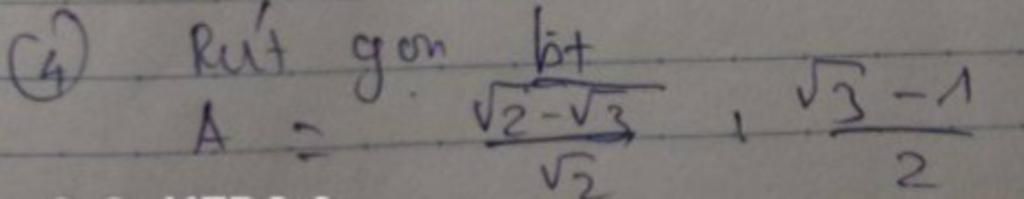 ④ Rút gọn bt
A = \frac{\sqrt{2-\sqrt{3}}}{\sqrt{2}} . \frac{\sqrt{3}-1}{2}